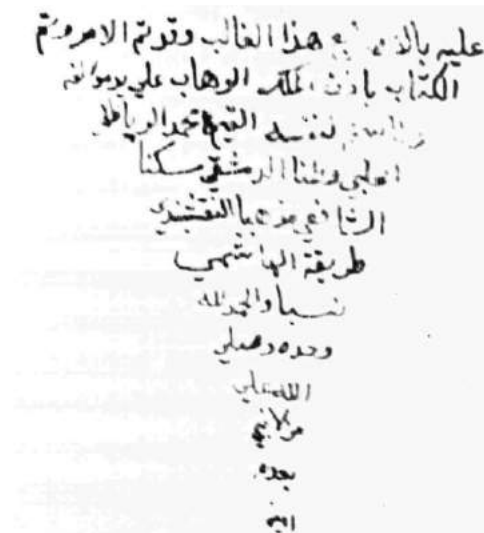 عليه بالذي في هذا الغالب وقد تم الامر وتم
الكتاب باذن الملك الوهاب علي يد مؤلفه
لنفسه الفقير محمد
الحلبي وطنا الدمشقي سكنا
الشافعي مذهبا النقشبندي
طريقة الهاشمي
نسبا والحمد لله
وحده وصلي
الله علي
من لا نبي
بعده
امين